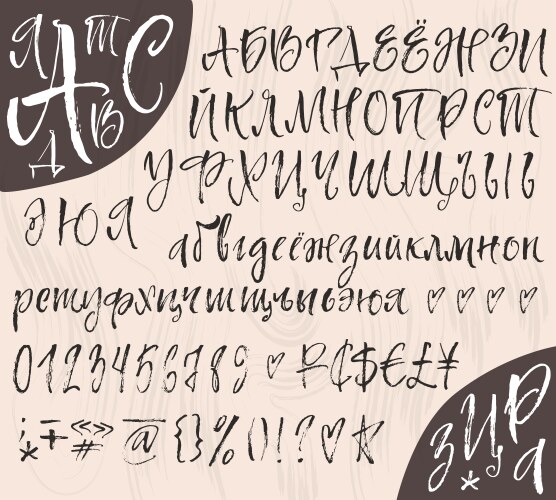 Я А т С
Д В
АБВГДЕЁЖЗИ
ЙКЛМНОПРСТ
УФХЦЧШЩЪЫЬ
ЭЮЯ
абвгдеёжзийклмноп
рстуфхцчшщъыьэюя ♡ ♡ ♡ ♡
0123456789 ♡ ₽ ₵ $ € £ ¥
; * - + « » # @ { } % ( ) ! ? ♡ ☆
З Ц Р
* Я